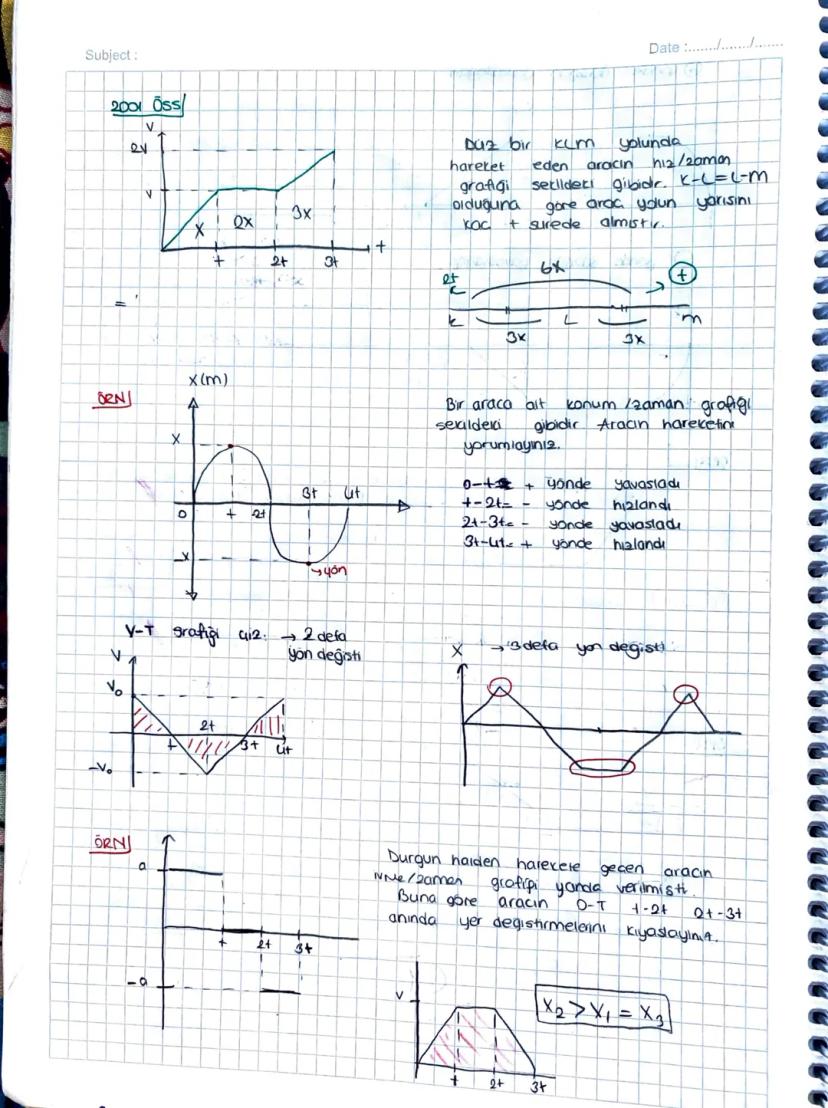 Subject :
Date :......./......./.......
2001 ÖSS
V
2V
V
X
2X
3X
t
2t
3t
t
Düz bir KLM yolunda
hareket eden aracın hız/zaman
grafiği şekildeki gibidir. K-L=L-M
olduğuna göre araç yolun yarısını
kaç t sürede almıştır.
6X
2t
+
K
L
M
3X
3X
=
ÖRN
X(m)
X
O
t
2t
3t
4t
-X
→yön
Bir araca ait konum/zaman grafiği
şekildeki gibidir Aracın hareketini
yorumlayınız.
0-t + yönde yavaşladı
t-2t= - yönde hızlandı
2t-3t= - yönde yavaşladı
3t-4t= + yönde hızlandı
V-T grafiği çiz. → 2 defa
yön değişti
V
V₀
t
2t
3t
4t
-V₀
X → 3 defa yön değişti.
ÖRN
a
t
2t
3t
-a
Durgun halden harekete geçen aracın
ivme/zaman grafiği yanda verilmişti.
Buna göre aracın 0-T t-2t 2t-3t
anında yer değiştirmelerini kıyaslayınız.
V
t
2t
3t
X₂ > X₁ = X₃